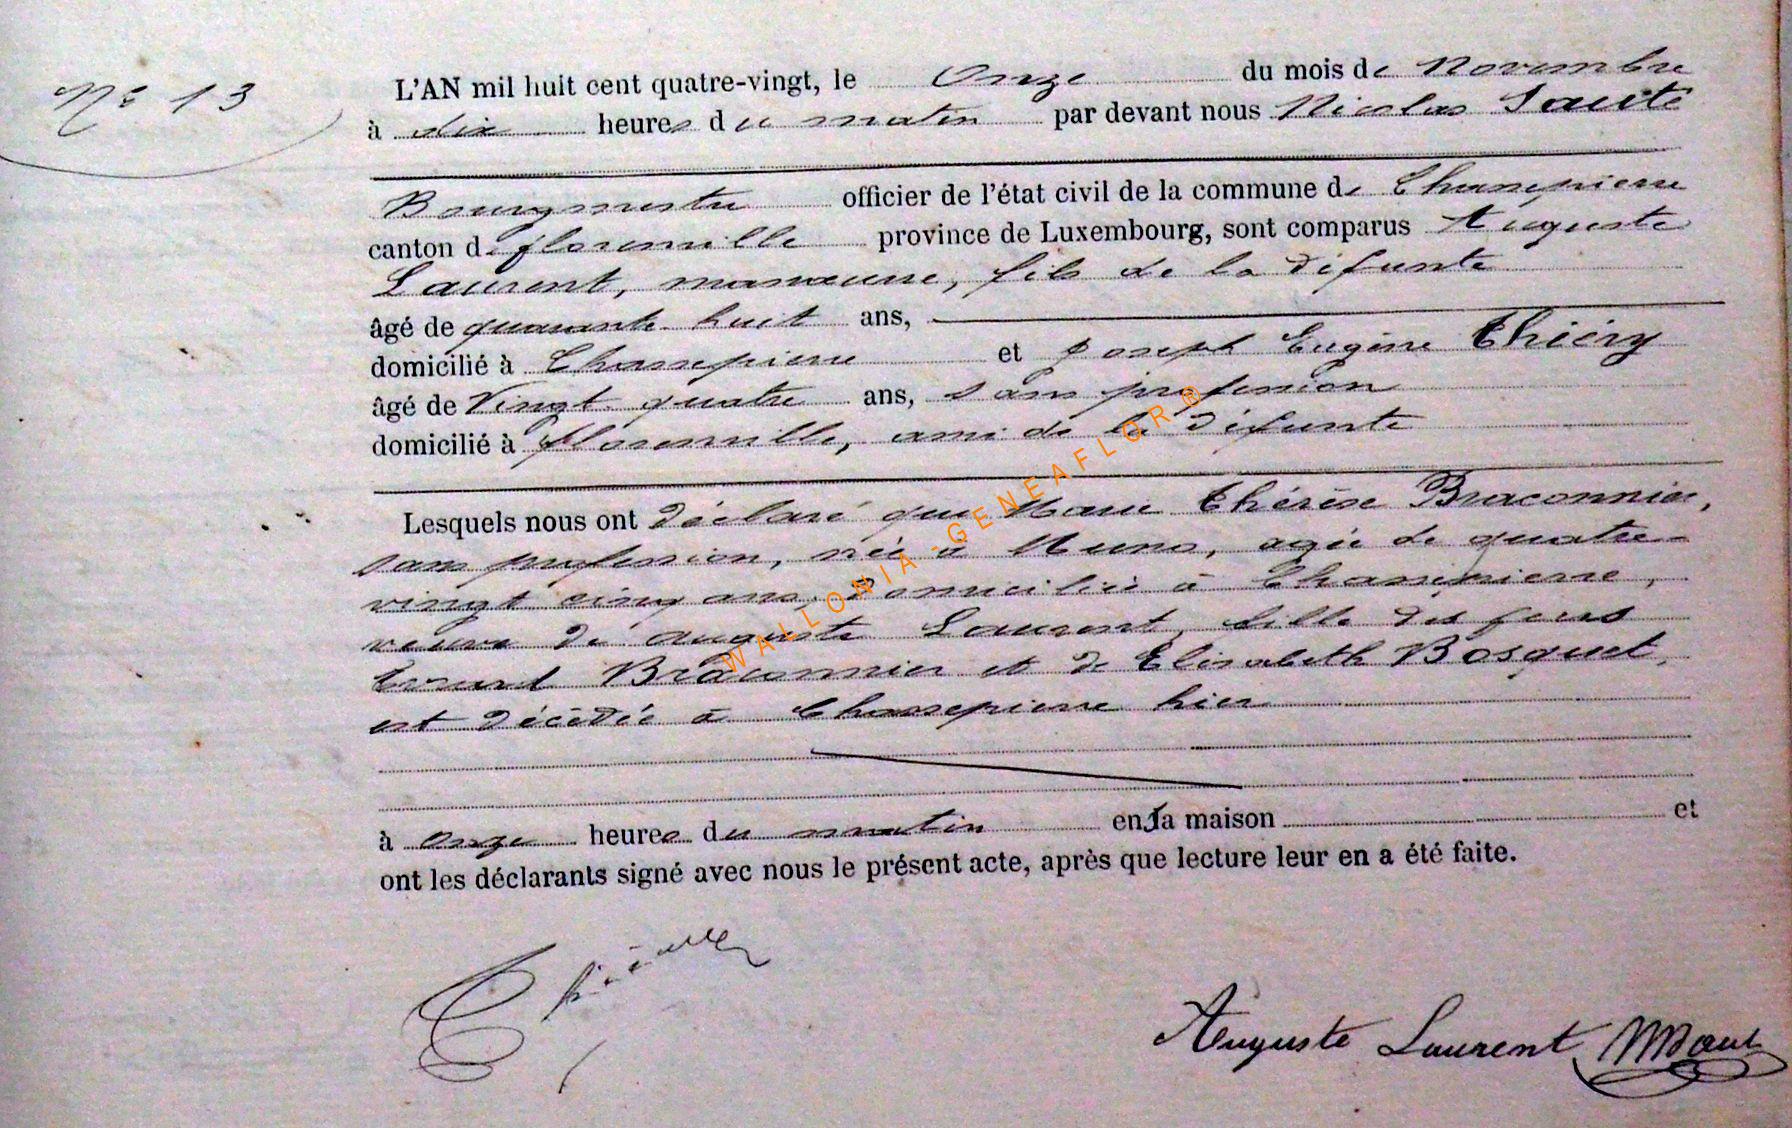 N° 13
L'AN mil huit cent quatre-vingt, le Onze du mois de Novembre
à dix heures du matin par devant nous Nicolas Sauté
Bourgmestre officier de l'état civil de la commune de Chassepierre
canton de florenville province de Luxembourg, sont comparus Auguste
Laurent, manœuvre, fils de la défunte
âgé de quarante huit ans,
domicilié à Chassepierre et Joseph Eugène Thiéry
âgé de Vingt quatre ans, sans profession
domicilié à florenville, ami de la défunte
Lesquels nous ont déclaré que Marie Thérèse Braconnier,
sans profession, née à Muno, agée de quatre-
vingt cinq ans, domiciliée à Chassepierre,
veuve de auguste Laurent, fille des feus
Braconnier et de Elisabeth Bosquet,
est décédée à Chassepierre hier
à onze heures du matin en sa maison et
ont les déclarants signé avec nous le présent acte, après que lecture leur en a été faite.
Auguste Laurent
WALLONIA-GENEAFLOR®